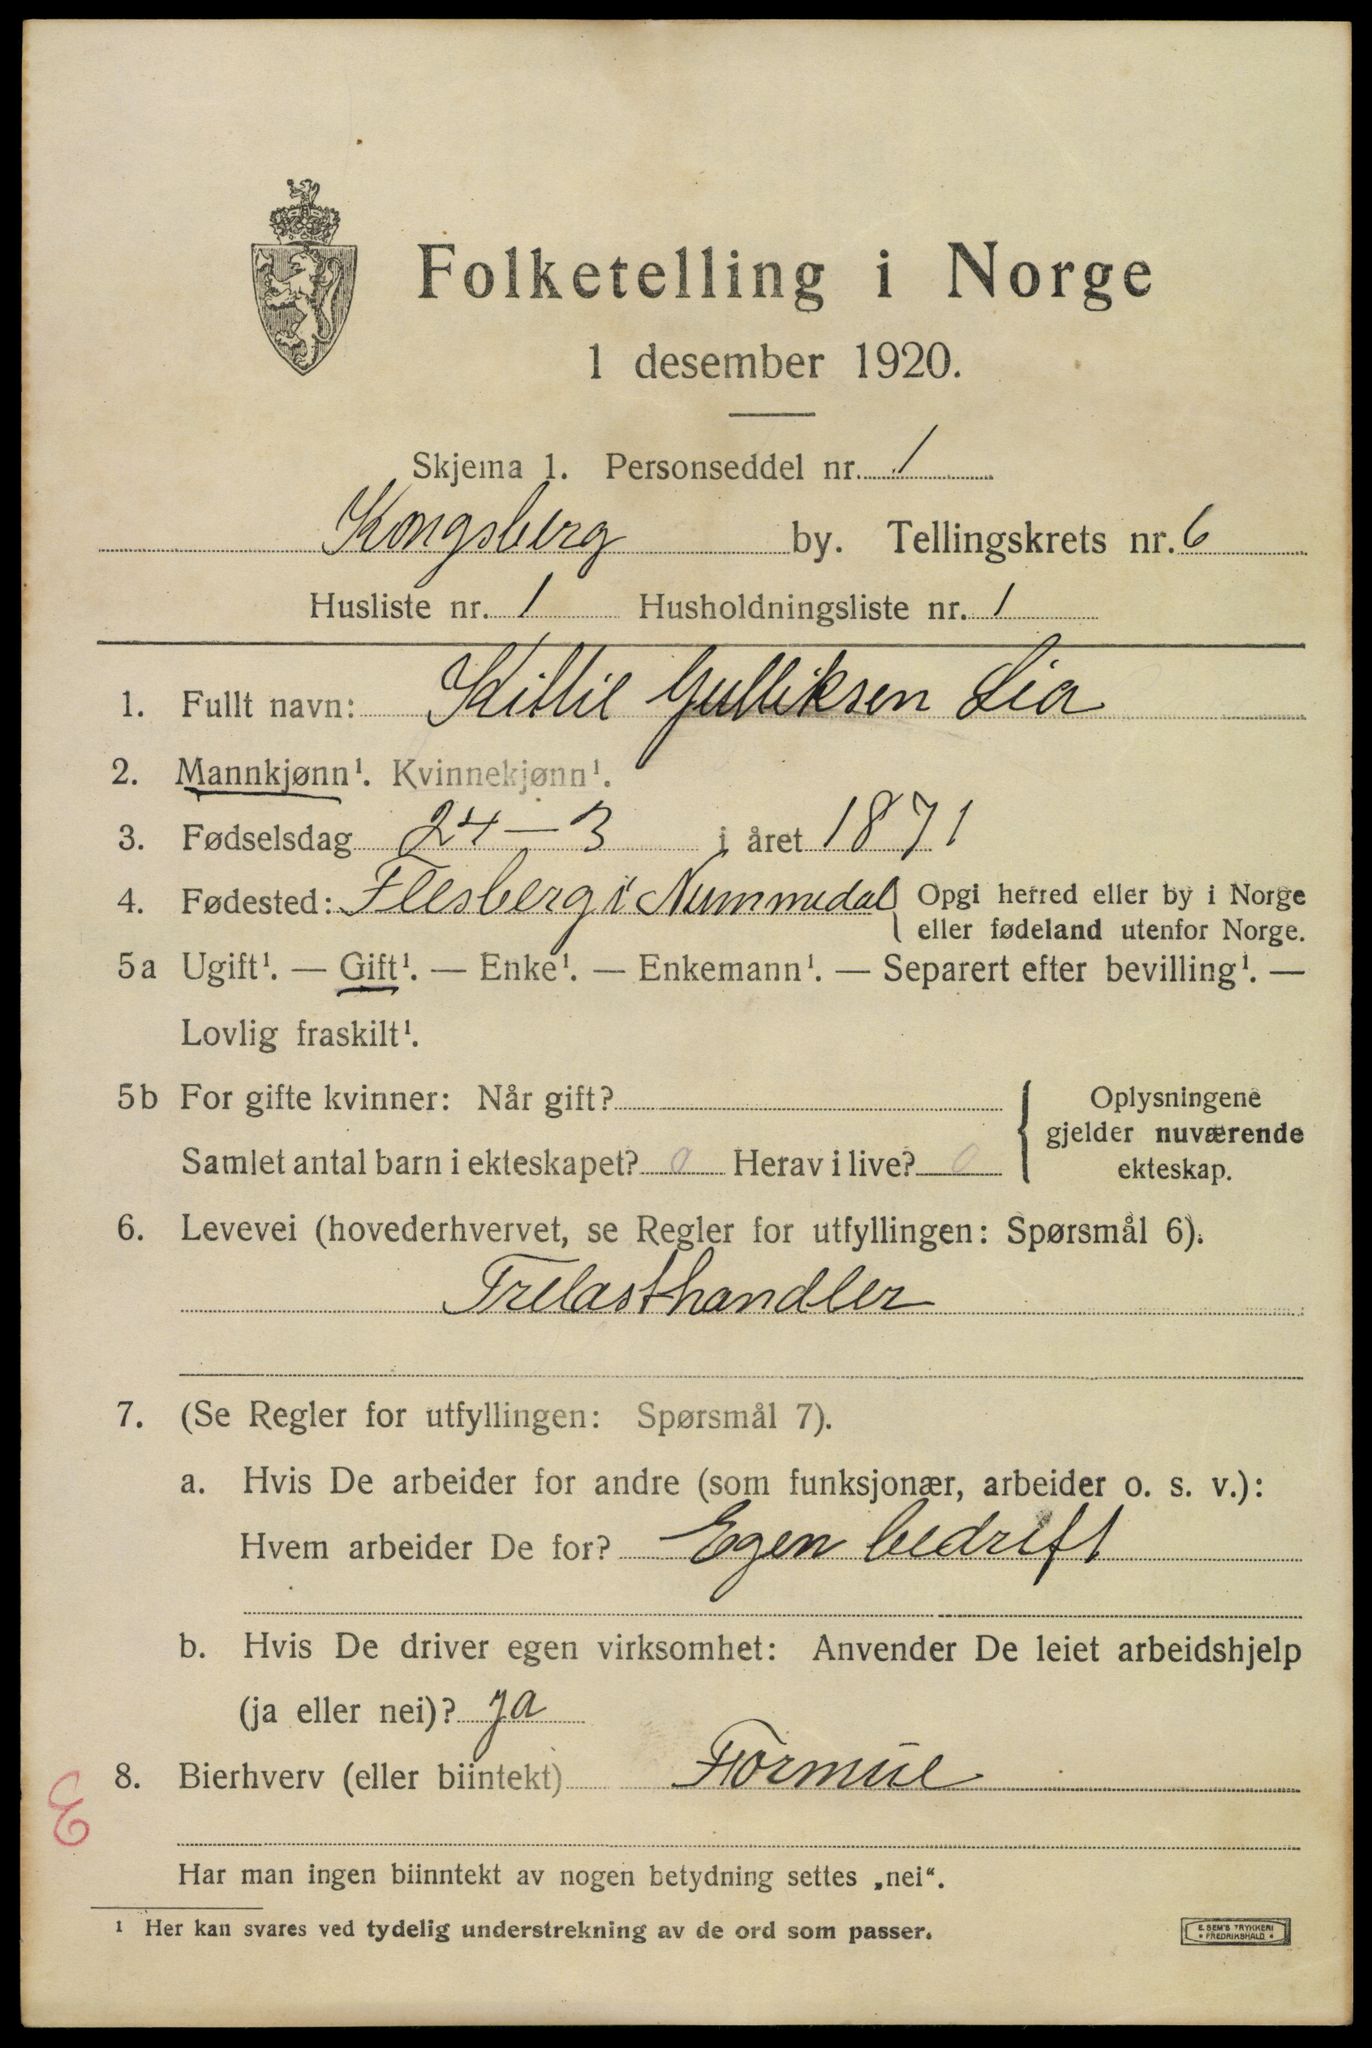 Folketelling i Norge
1 desember 1920.
Skjema 1. Personseddel nr. 1
Kongsberg by. Tellingskrets nr. 6
Husliste nr. 1 Husholdningsliste nr. 1
1. Fullt navn: Kittil Gulliksen Lia
2. Mannkjønn¹. Kvinnekjønn¹.
3. Fødselsdag 24 – 3 i året 1871
4. Fødested: Flesberg i Nummedal { Opgi herred eller by i Norge
eller fødeland utenfor Norge.
5a Ugift¹. — Gift¹. — Enke¹. — Enkemann¹. — Separert efter bevilling¹. —
Lovlig fraskilt¹.
5b For gifte kvinner: Når gift?
Samlet antal barn i ekteskapet? 0 Herav i live? 0
Oplysningene
gjelder nuværende
ekteskap.
6. Levevei (hovederhvervet, se Regler for utfyllingen: Spørsmål 6).
Trelasthandler
7. (Se Regler for utfyllingen: Spørsmål 7).
a. Hvis De arbeider for andre (som funksjonær, arbeider o. s. v.):
Hvem arbeider De for? Egen bedrift
b. Hvis De driver egen virksomhet: Anvender De leiet arbeidshjelp
(ja eller nei)? ja
8. Bierhverv (eller biintekt) Formue
E
Har man ingen biinntekt av nogen betydning settes „nei“.
¹ Her kan svares ved tydelig understrekning av de ord som passer.
E. SEM'S TRYKKERI
• FREDRIKSHALD •